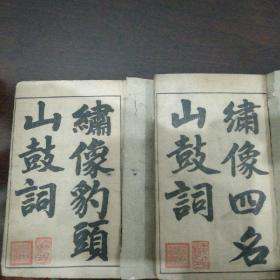 繡像四名
山鼓詞
繡像豹頭
山鼓詞